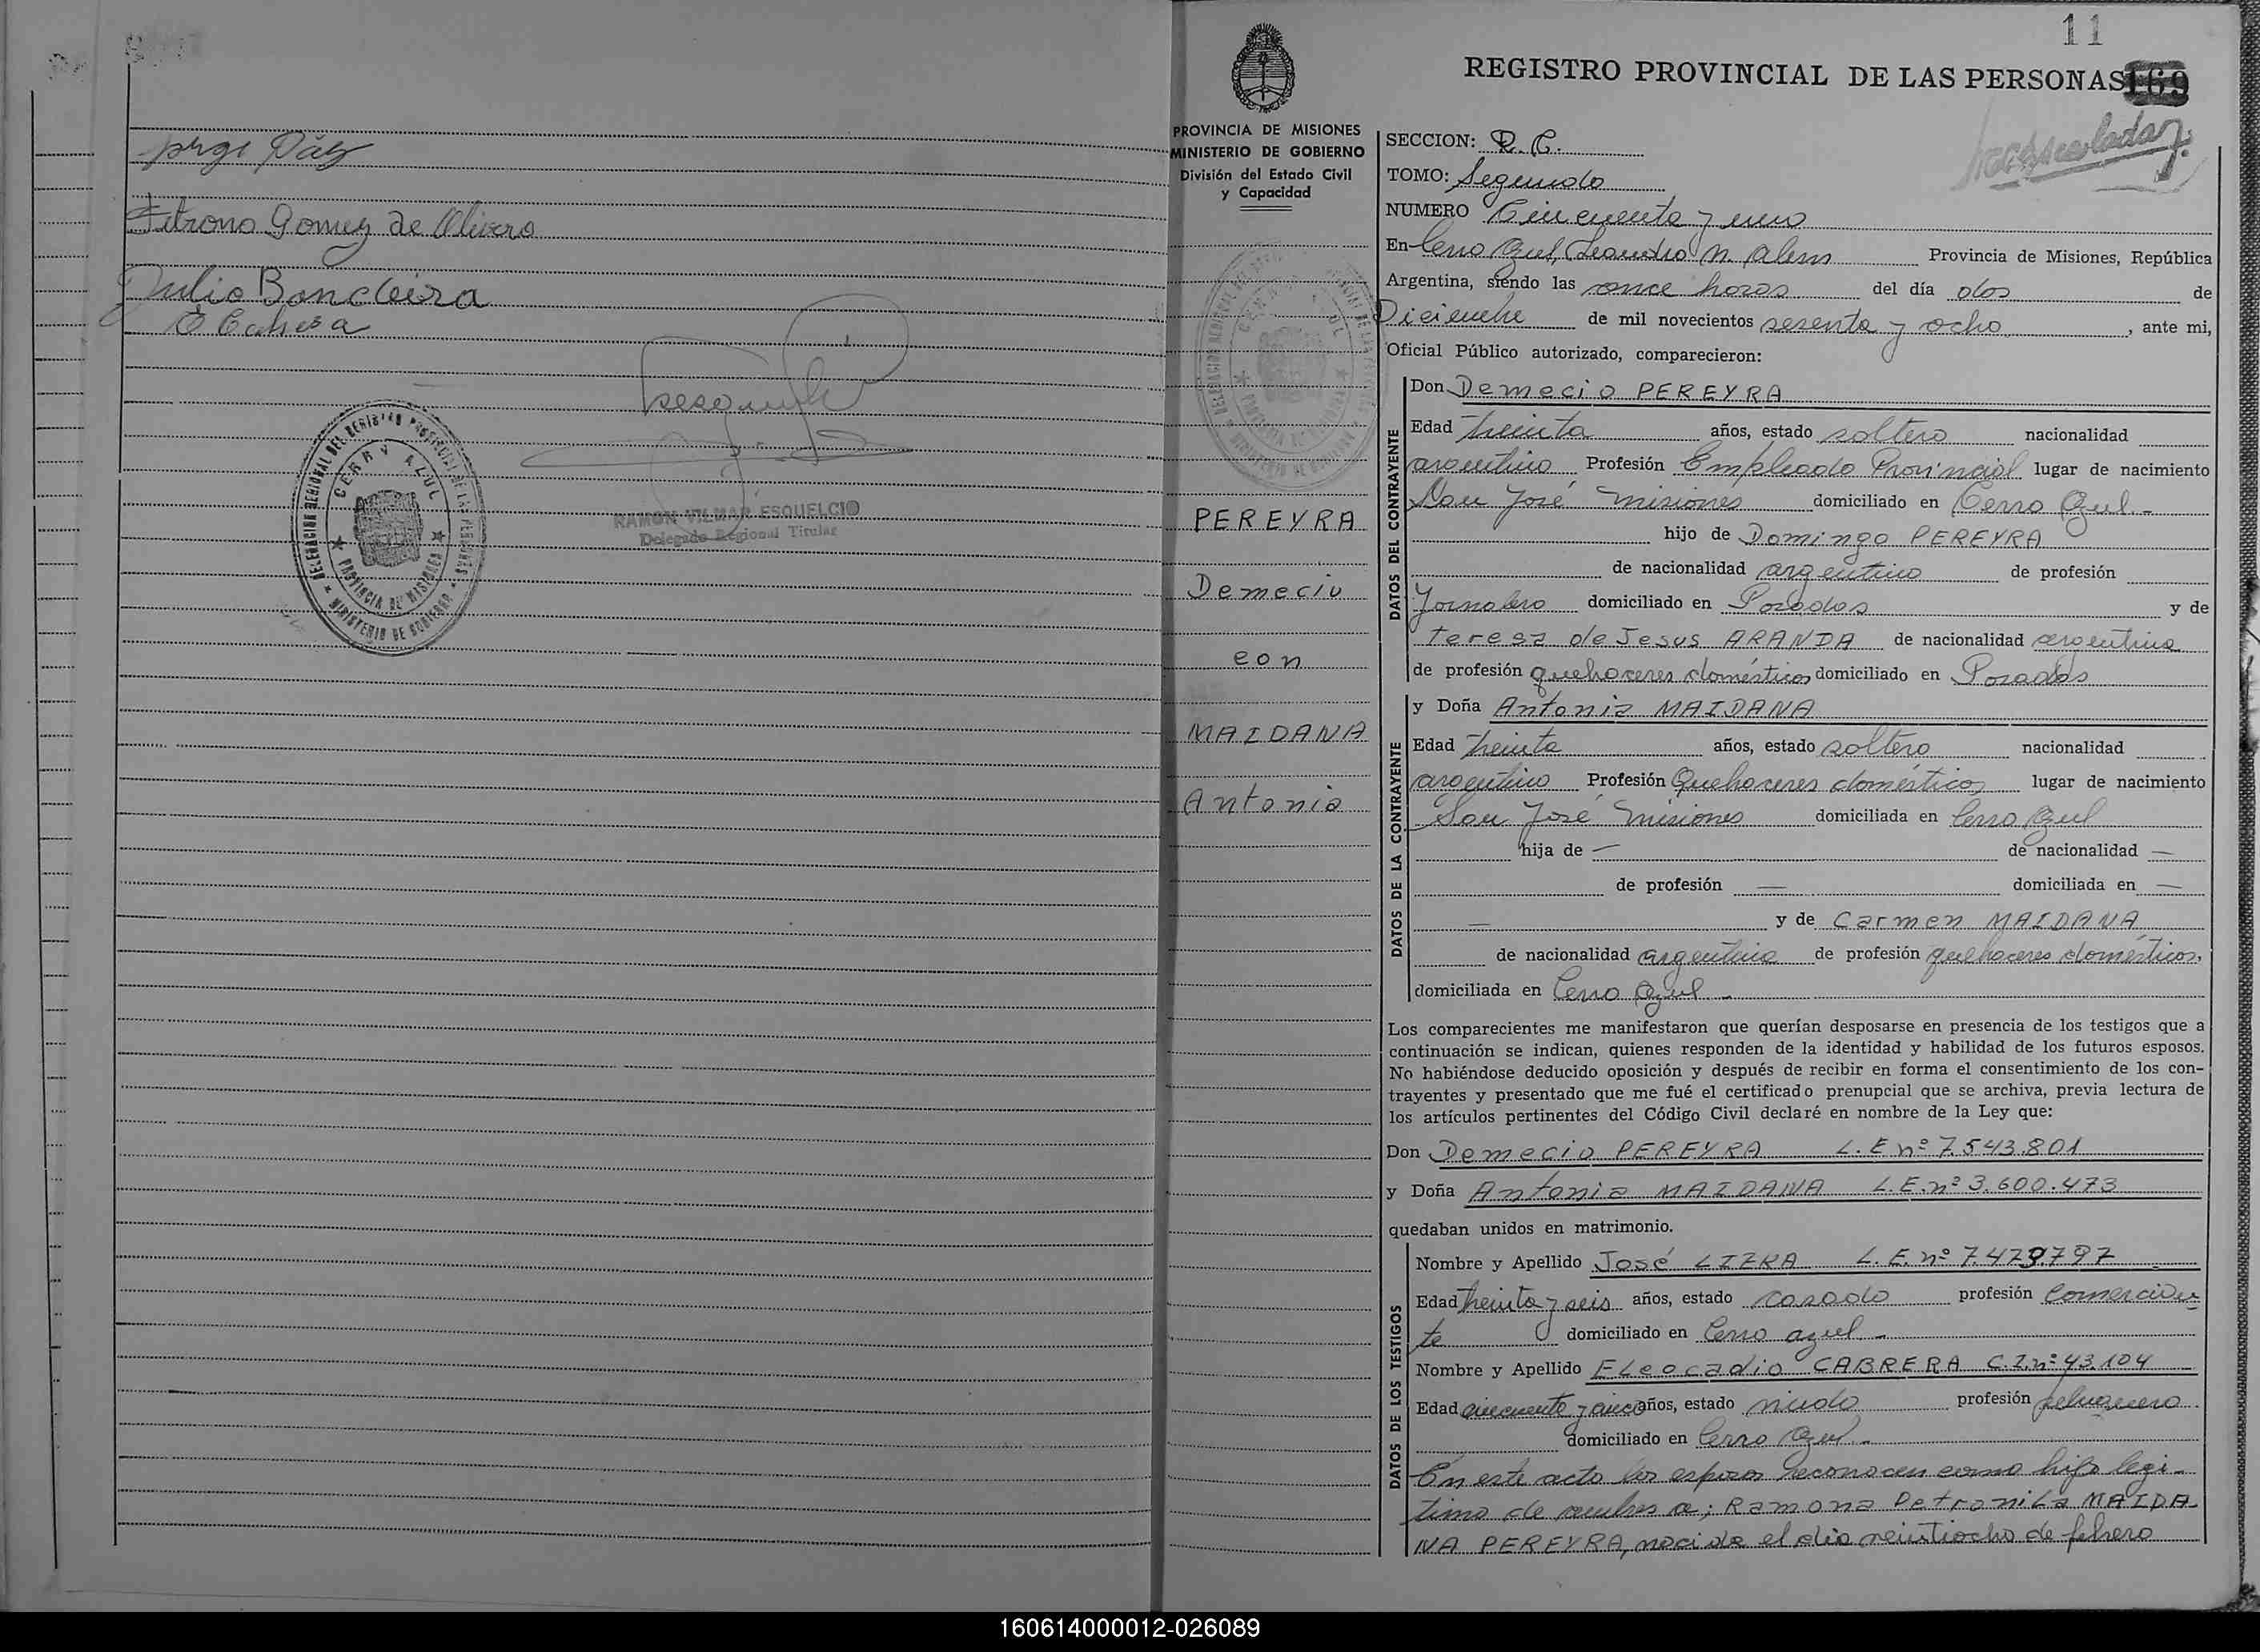 Jorge Páez
Petrona Gomez de Olivera
Julio Bandeira
E Cabrera
DELEGACION REGIONAL DEL REGISTRO PROVINCIAL DE LAS PERSONAS
CERRO AZUL
PROVINCIA DE MISIONES
MINISTERIO DE GOBIERNO
RAMON VILMAR ESQUELCIO
Delegado Regional Titular
11
REGISTRO PROVINCIAL DE LAS PERSONAS 169
PROVINCIA DE MISIONES
MINISTERIO DE GOBIERNO
División del Estado Civil
y Capacidad
PEREYRA
Demecio
con
MAIDANA
Antonia
SECCION: R.C.
TOMO: Segundo
NUMERO Cincuenta y uno
En Cerro Azul, Leandro N. Alem Provincia de Misiones, República
Argentina, siendo las once horas del día dos de
Diciembre de mil novecientos sesenta y ocho, ante mi,
Oficial Público autorizado, comparecieron:
DATOS DEL CONTRAYENTE
Don Demecio PEREYRA
Edad treinta años, estado soltero nacionalidad
argentino Profesión Empleado Provincial lugar de nacimiento
San José Misiones domiciliado en Cerro Azul.-
hijo de Domingo PEREYRA
de nacionalidad argentino de profesión
Jornalero domiciliado en Posadas y de
teresa de Jesus ARANDA de nacionalidad argentina
de profesión quehaceres domésticos domiciliado en Posadas
DATOS DE LA CONTRAYENTE
y Doña Antonia MAIDANA
Edad treinta años, estado soltera nacionalidad
argentina Profesión Quehaceres domésticos lugar de nacimiento
San José Misiones domiciliada en Cerro Azul
hija de — de nacionalidad —
de profesión — domiciliada en —
— y de Carmen MAIDANA
de nacionalidad argentina de profesión quehaceres domésticos,
domiciliada en Cerro Azul -
Los comparecientes me manifestaron que querían desposarse en presencia de los testigos que a
continuación se indican, quienes responden de la identidad y habilidad de los futuros esposos.
No habiéndose deducido oposición y después de recibir en forma el consentimiento de los con-
trayentes y presentado que me fué el certificado prenupcial que se archiva, previa lectura de
los artículos pertinentes del Código Civil declaré en nombre de la Ley que:
Don Demecio PEREYRA L.E nº 7.543.801
y Doña Antonia MAIDANA L.E.nº 3.600.473
quedaban unidos en matrimonio.
DATOS DE LOS TESTIGOS
Nombre y Apellido José LIZKA L.E. nº 7.479.797
Edad treinta y seis años, estado casado profesión Comercian
te domiciliado en Cerro azul -
Nombre y Apellido ELeocadio CABRERA C.I.nº 43.104
Edad cincuenta y cinco años, estado viudo profesión peluquero
domiciliado en Cerro Azul -
En este acto los esposos reconocen como hija legi-
tima de ambos a; Ramona Petronila MAIDA
NA PEREYRA, nacida el dia veintiocho de febrero
160614000012-026089